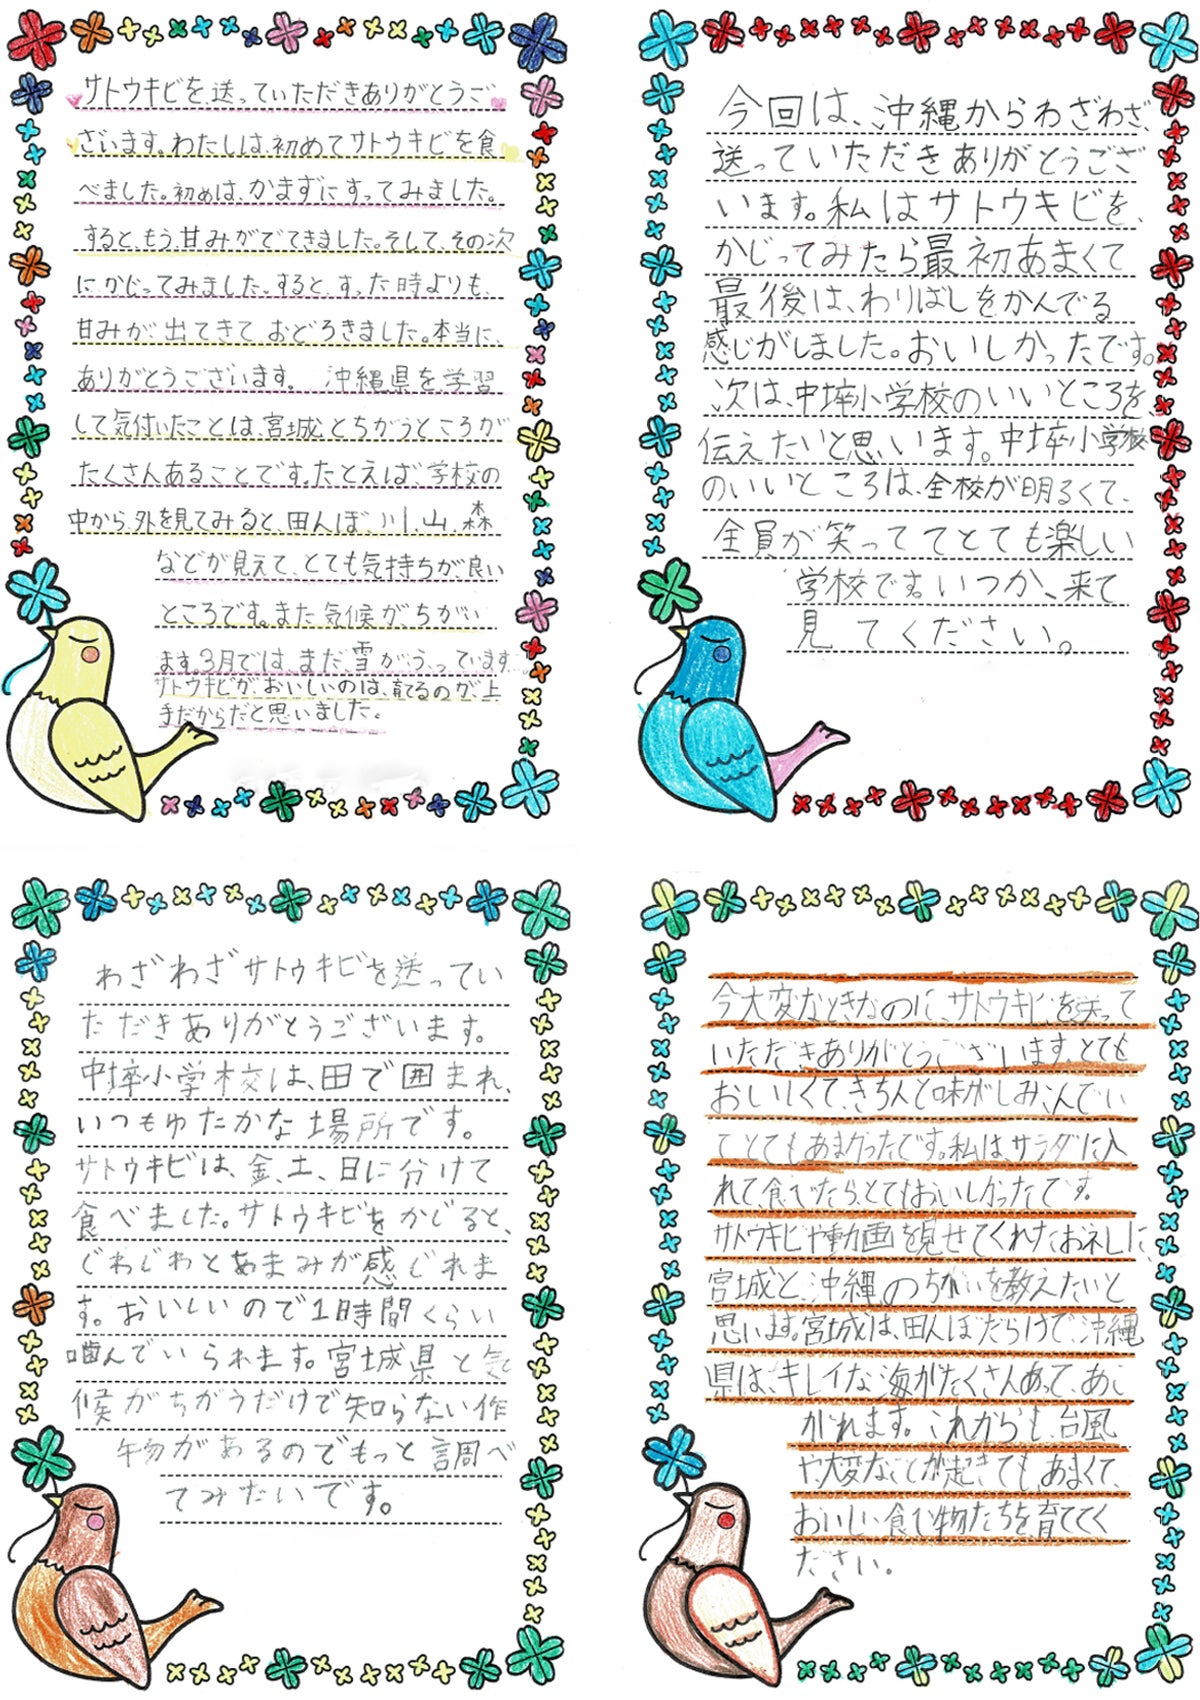 サトウキビを送っていただきありがとうご
ざいます。わたしは、初めてサトウキビを食
べました。初めは、かまずにすってみました。
すると、もう甘みがでてきました。そして、その次
に、かじってみました。すると、すった時よりも、
甘みが、出てきて、おどろきました。本当に、
ありがとうございます。 沖縄県を学習
して気付いたことは、宮城とちがうところが
たくさんあることです。たとえば、学校の
中から、外を見てみると、田んぼ、川、山、森
などが見えて、とても気持ちが、良い
ところです。また気候が、ちがい
ます。3月では、まだ、雪がふっています。
サトウキビが、おいしいのは、育てるのが上
手だからだと思いました。
今回は、沖縄からわざわざ、
送っていただきありがとうござ
います。私はサトウキビを、
かじってみたら最初あまくて
最後は、わりばしをかんでる
感じがしました。おいしかったです。
次は、中埣小学校のいいところを、
伝えたいと思います。中埣小学校
のいいところは、全校が明るくて、
全員が笑っててとても楽しい
学校です。いつか、来て
見てください。
わざわざサトウキビを送ってい
ただきありがとうございます。
中埣小学校は、田で囲まれ、
いつもゆたかな場所です。
サトウキビは、金、土、日に分けて
食べました。サトウキビをかじると、
じわじわとあまみが感じれま
す。おいしいので1時間くらい
噛んでいられます。宮城県と気
候がちがうだけで知らない作
物があるのでもっと調べ
てみたいです。
今大変なときなのに、サトウキビを送って
いただきありがとうございます。とても
おいしくて、きちんと味がしみこんでい
てとてもあまかったです。私は、サラダに入
れて、食べたら、とてもおいしかったです。
サトウキビや動画を見せてくれたお礼に、
宮城と、沖縄のちがいを教えたいと
思います。宮城は、田んぼだらけで、沖縄
県は、キレイな海がたくさんあって、あこ
がれます。これからも、台風
や、大変なことが起きても、あまくて、
おいしい食べ物たちを、育ててく
ださい。